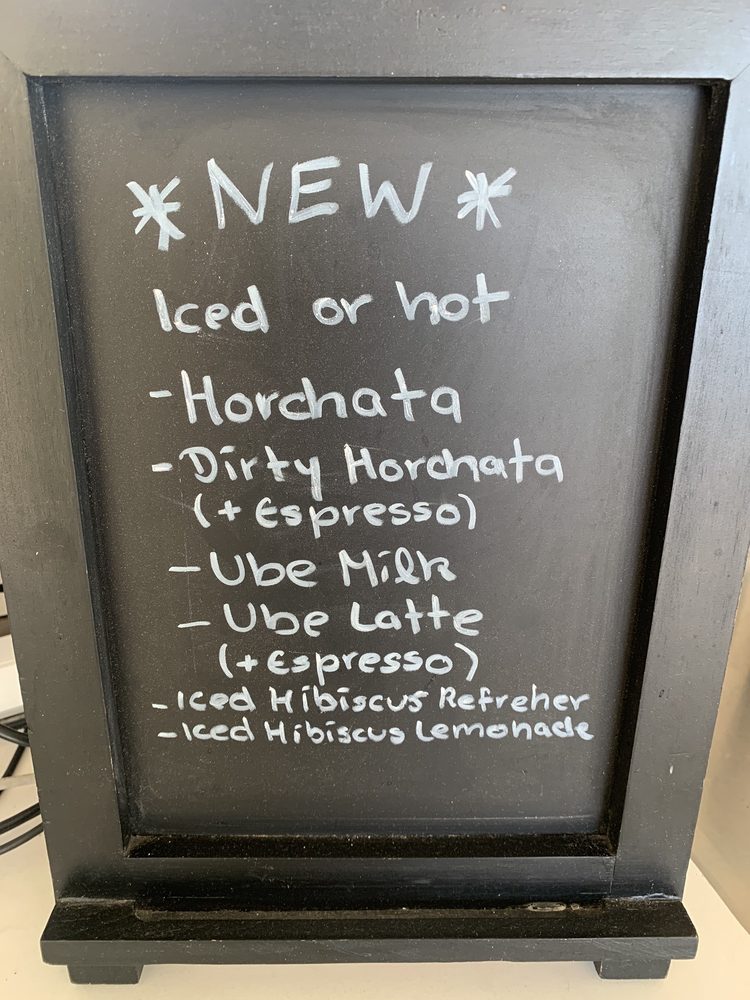 *NEW*
Iced or hot
-Horchata
-Dirty Horchata
(+Espresso)
-Ube Milk
-Ube Latte
(+Espresso)
-Iced Hibiscus Refreher
-Iced Hibiscus Lemonade